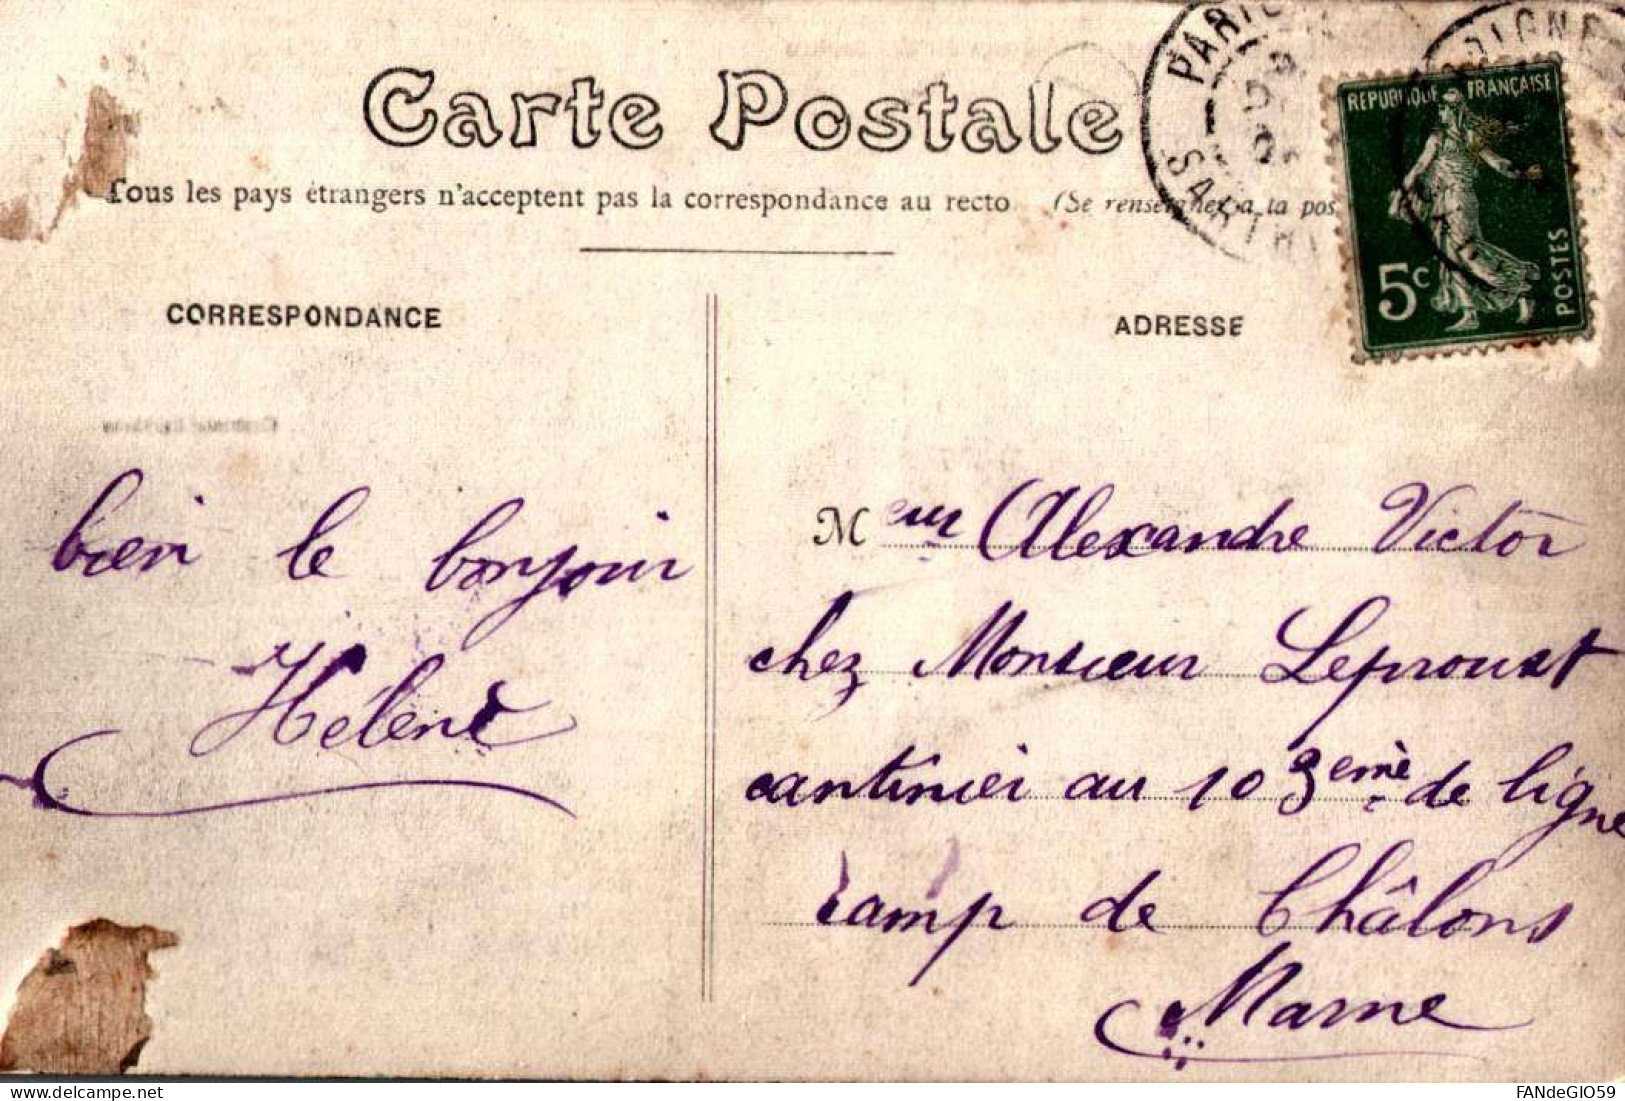 Carte Postale
Tous les pays étrangers n'acceptent pas la correspondance au recto (Se renseigner à la pos
CORRESPONDANCE
ADRESSE
REPUBLIQUE FRANÇAISE
5c
POSTES
SARTH
bien le bonjour
Hélène
Meur Alexandre Victor
chez Monsieur Leproust
cantinier au 103eme de ligne
camp de Châlons
Marne
FANdeGIO59